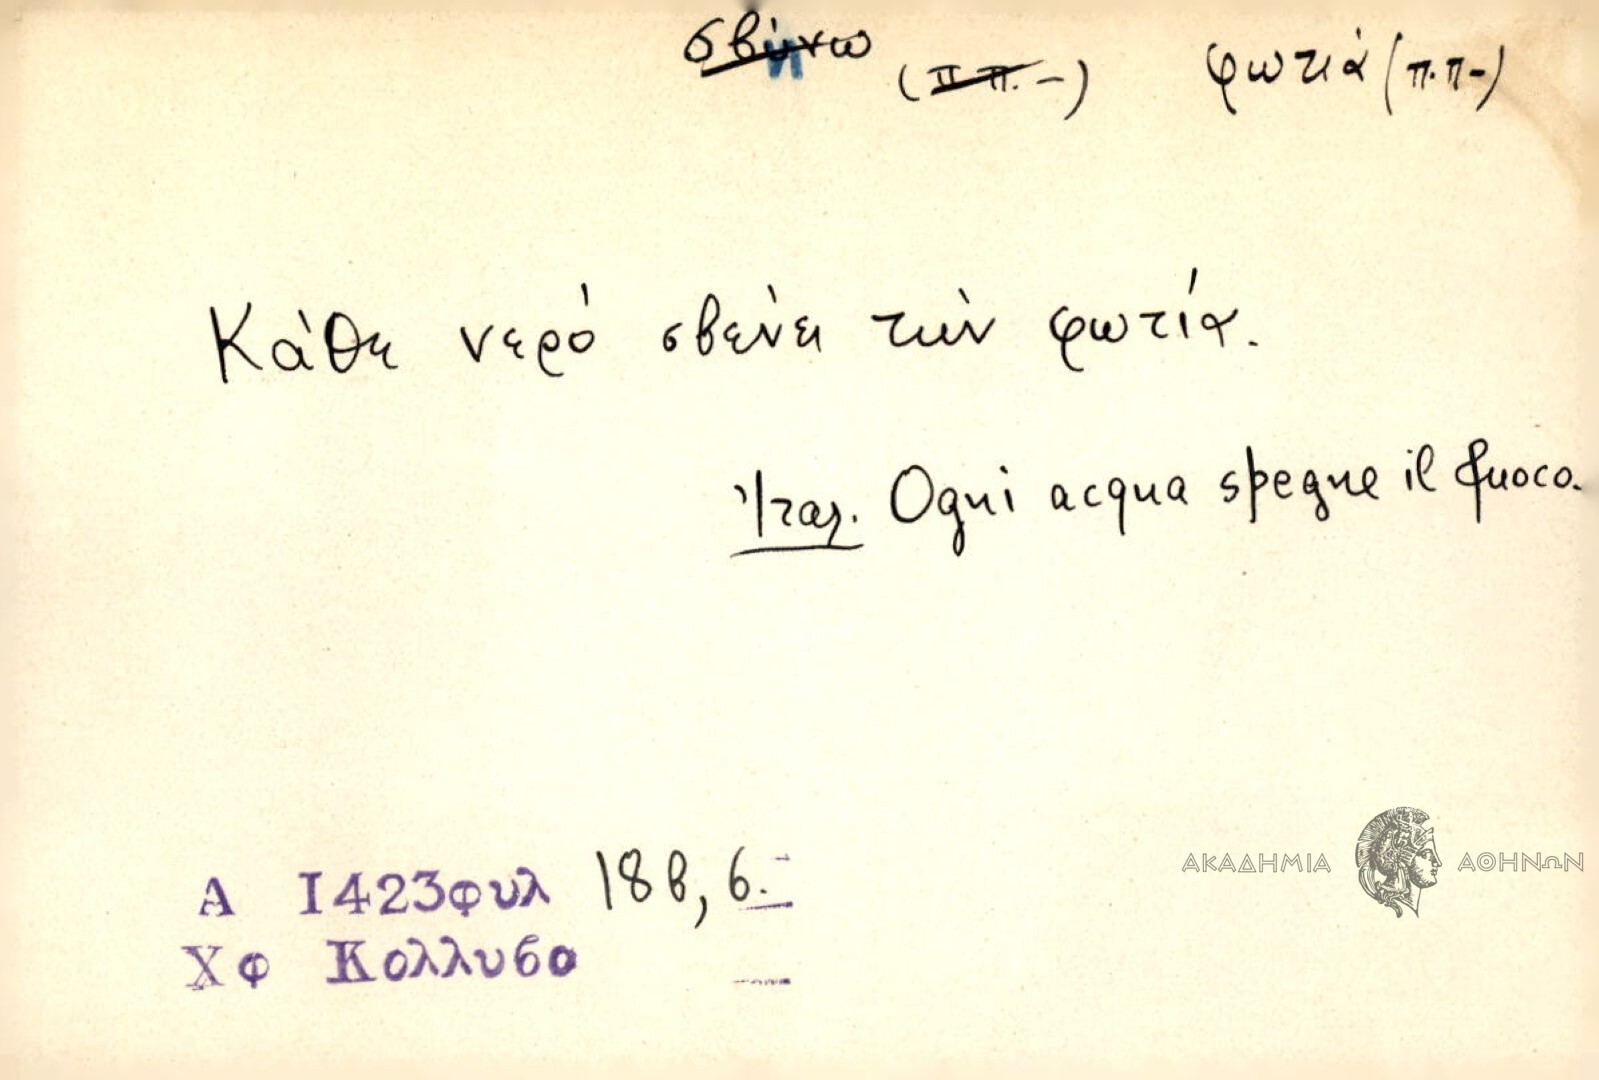 σβήνω (π.π.-) φωτιά (π.π-)
Κάθε νερό σβένει τὴν φωτιά.
Ἰταλ. Ogni acqua spegne il fuoco.
Α 1423 φυλ 18β, 6.
Χφ Κολλυβο
ΑΚΑΔΗΜΙΑ ΑΘΗΝΩΝ